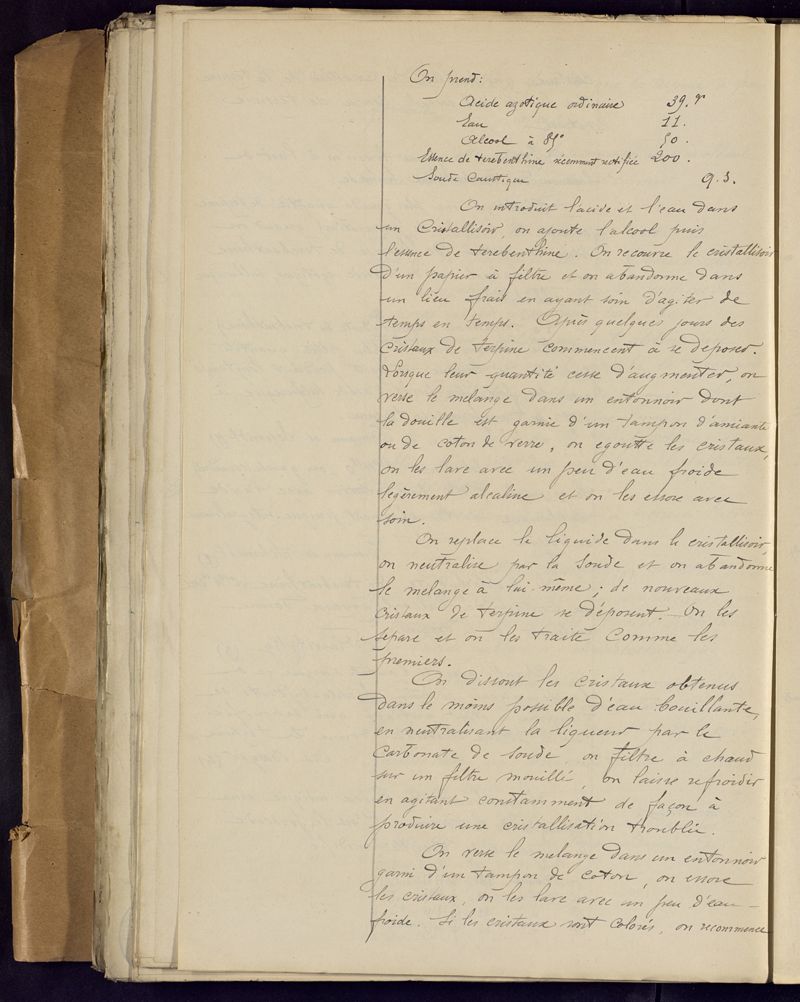 On prend:
Acide azotique ordinaire 39.gr
Eau 11.
Alcool à 85° 50.
Essence de terebenthine récemment rectifiée 200.
Soude Caustique q.s.
On introduit l'acide et l'eau dans
un Cristallisoir, on ajoute l'alcool puis
l'essence de terebenthine. On recouvre le cristallisoir
d'un papier à filtre et on abandonne dans
un lieu frais en ayant soin d'agiter de
temps en temps. Après quelques jours des
Cristaux de terpine commencent à se deposer.
Lorsque leur quantité cesse d'augmenter, on
verse le melange dans un entonnoir dont
la douille est garnie d'un tampon d'amiante
ou de coton de verre, on egoutte les cristaux,
on les lave avec un peu d'eau froide
legèrement alcaline et on les essore avec
soin.
On replace le liquide dans le cristallisoir,
on neutralise par la soude et on abandonne
le melange à lui-même; de nouveaux
Cristaux de terpine se déposent. On les
separe et on les traite comme les
premiers.
On dissout les cristaux obtenus
dans le moins possible d'eau bouillante,
en neutralisant la liqueur par le
Carbonate de soude, on filtre à chaud
sur un filtre mouillé, on laisse refroidir
en agitant constamment de façon à
produire une cristallisation troublée.
On verse le melange dans un entonnoir
garni d'un tampon de coton, on essore
les cristaux, on les lave avec un peu d'eau-
froide. Si les cristaux sont colorés, on recommence